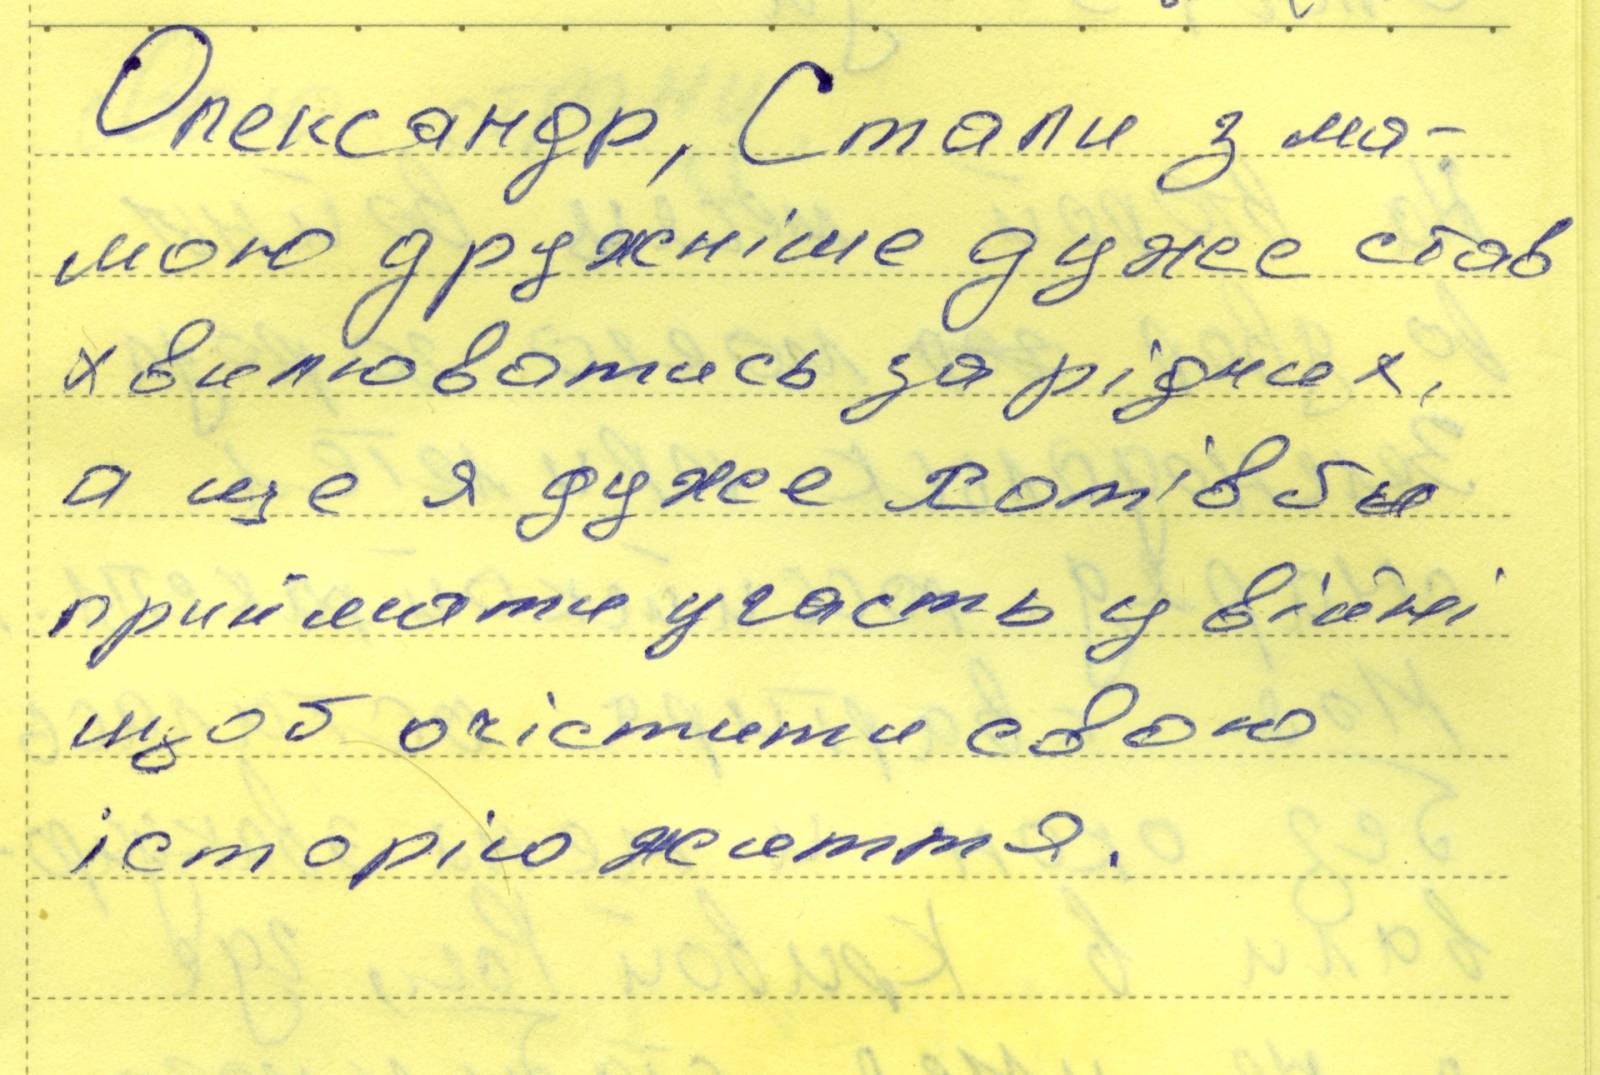 Олександр, Стали з ма-
мою дружніше дуже став
хвилюватись за рідних,
а ще я дуже хотів би
приймати участь у війні
щоб очістити свою
історію життя.